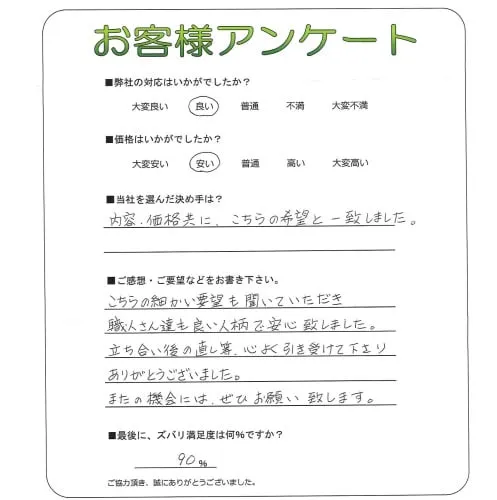 お客様アンケート
■弊社の対応はいかがでしたか？
大変良い 良い 普通 不満 大変不満
■価格はいかがでしたか？
大変安い 安い 普通 高い 大変高い
■当社を選んだ決め手は？
内容・価格共に、こちらの希望と一致しました。
■ご感想・ご要望などをお書き下さい。
こちらの細かい要望も聞いていただき
職人さん達も良い人柄で安心致しました。
立ち合い後の直し等、心よく引き受けて下さり
ありがとうございました。
またの機会には、ぜひお願い致します。
■最後に、ズバリ満足度は何%ですか？
90%
ご協力頂き、誠にありがとうございました。